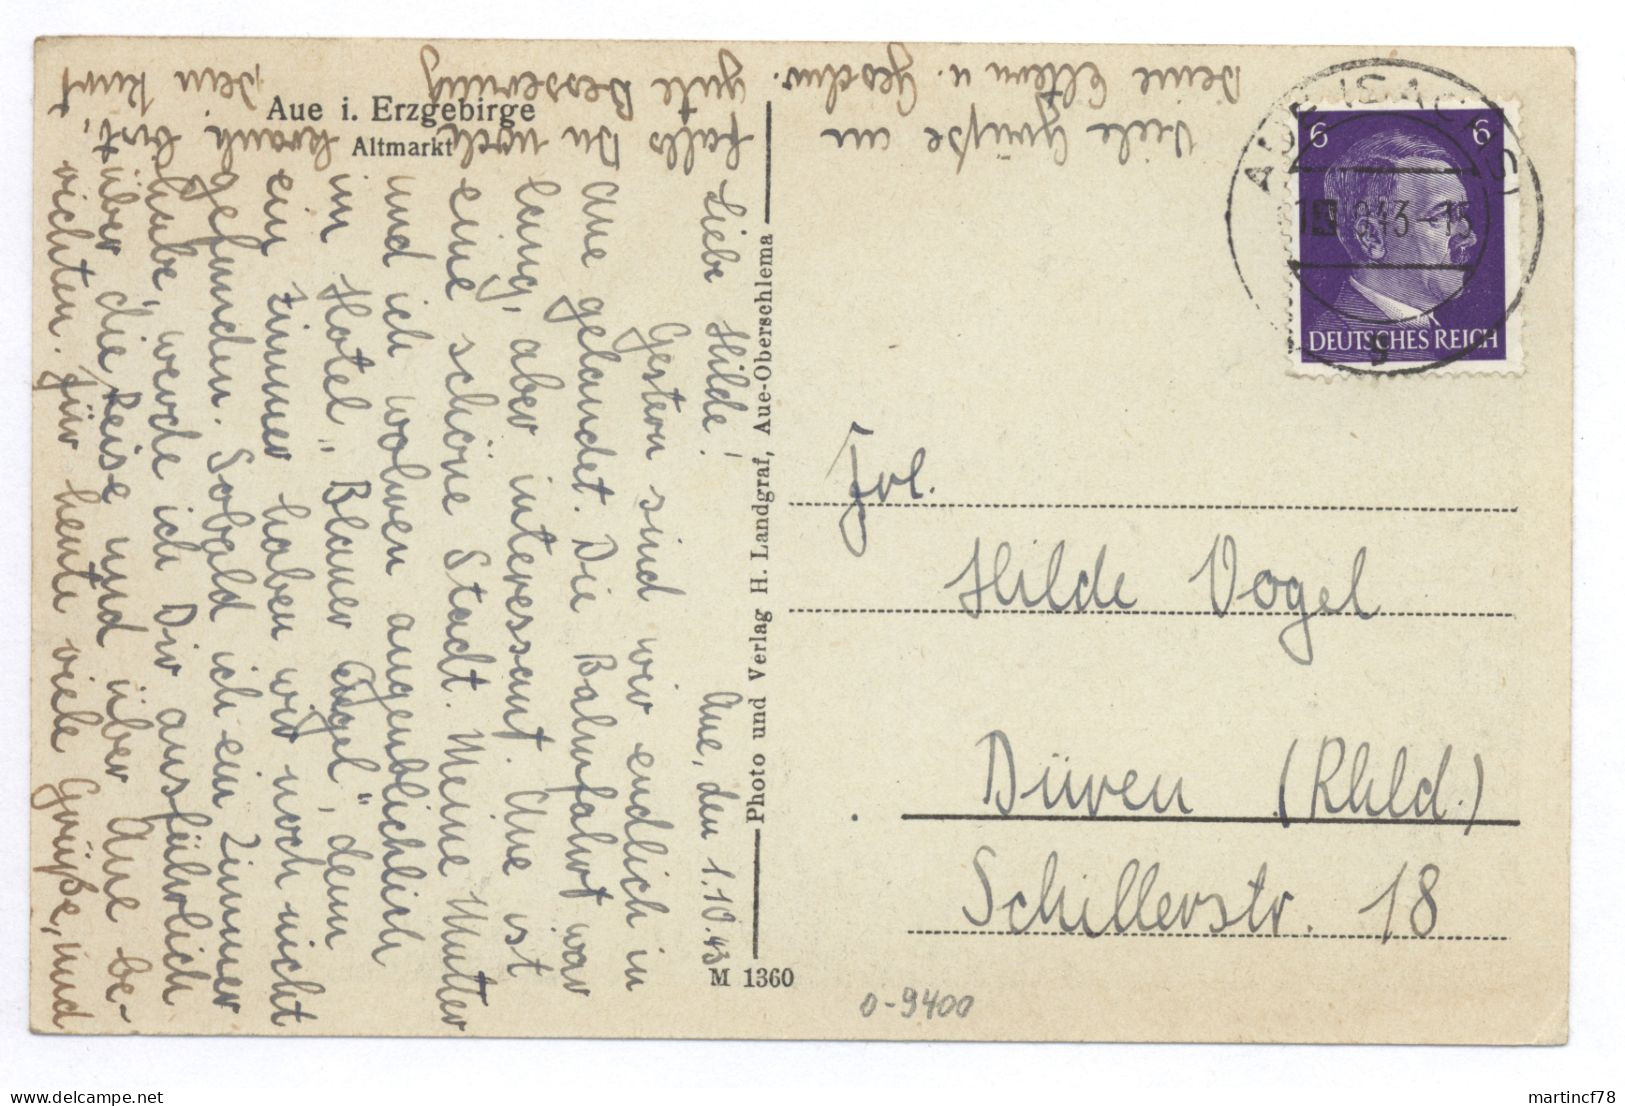 Aue i. Erzgebirge
Altmarkt
Aue, den 1.10.43
Liebe Hilde!
Gestern sind wir endlich in
Aue gelandet. Die Bahnfahrt war
lang, aber interessant. Aue ist
eine schöne Stadt. Meine Mutter
und ich wohnen augenblicklich
im Hotel „Blauer Engel“, denn
ein Zimmer haben wir noch nicht
gefunden. Sobald ich ein Zimmer
habe, werde ich Dir ausführlich
über die Reise und über Aue be-
richten. Für heute viele Grüße, und
falls Du noch krank bist,
gute Besserung
Dein Kurt
Viele Grüße an
Deine Eltern u. Geschw.
Photo und Verlag H. Landgraf, Aue-Oberschlema
M 1360
AUE (SACHS)
43-15
b
6 6
DEUTSCHES REICH
Frl.
Hilde Vogel
Düren (Rhld.)
Schillerstr. 18
0-9400
martincf78